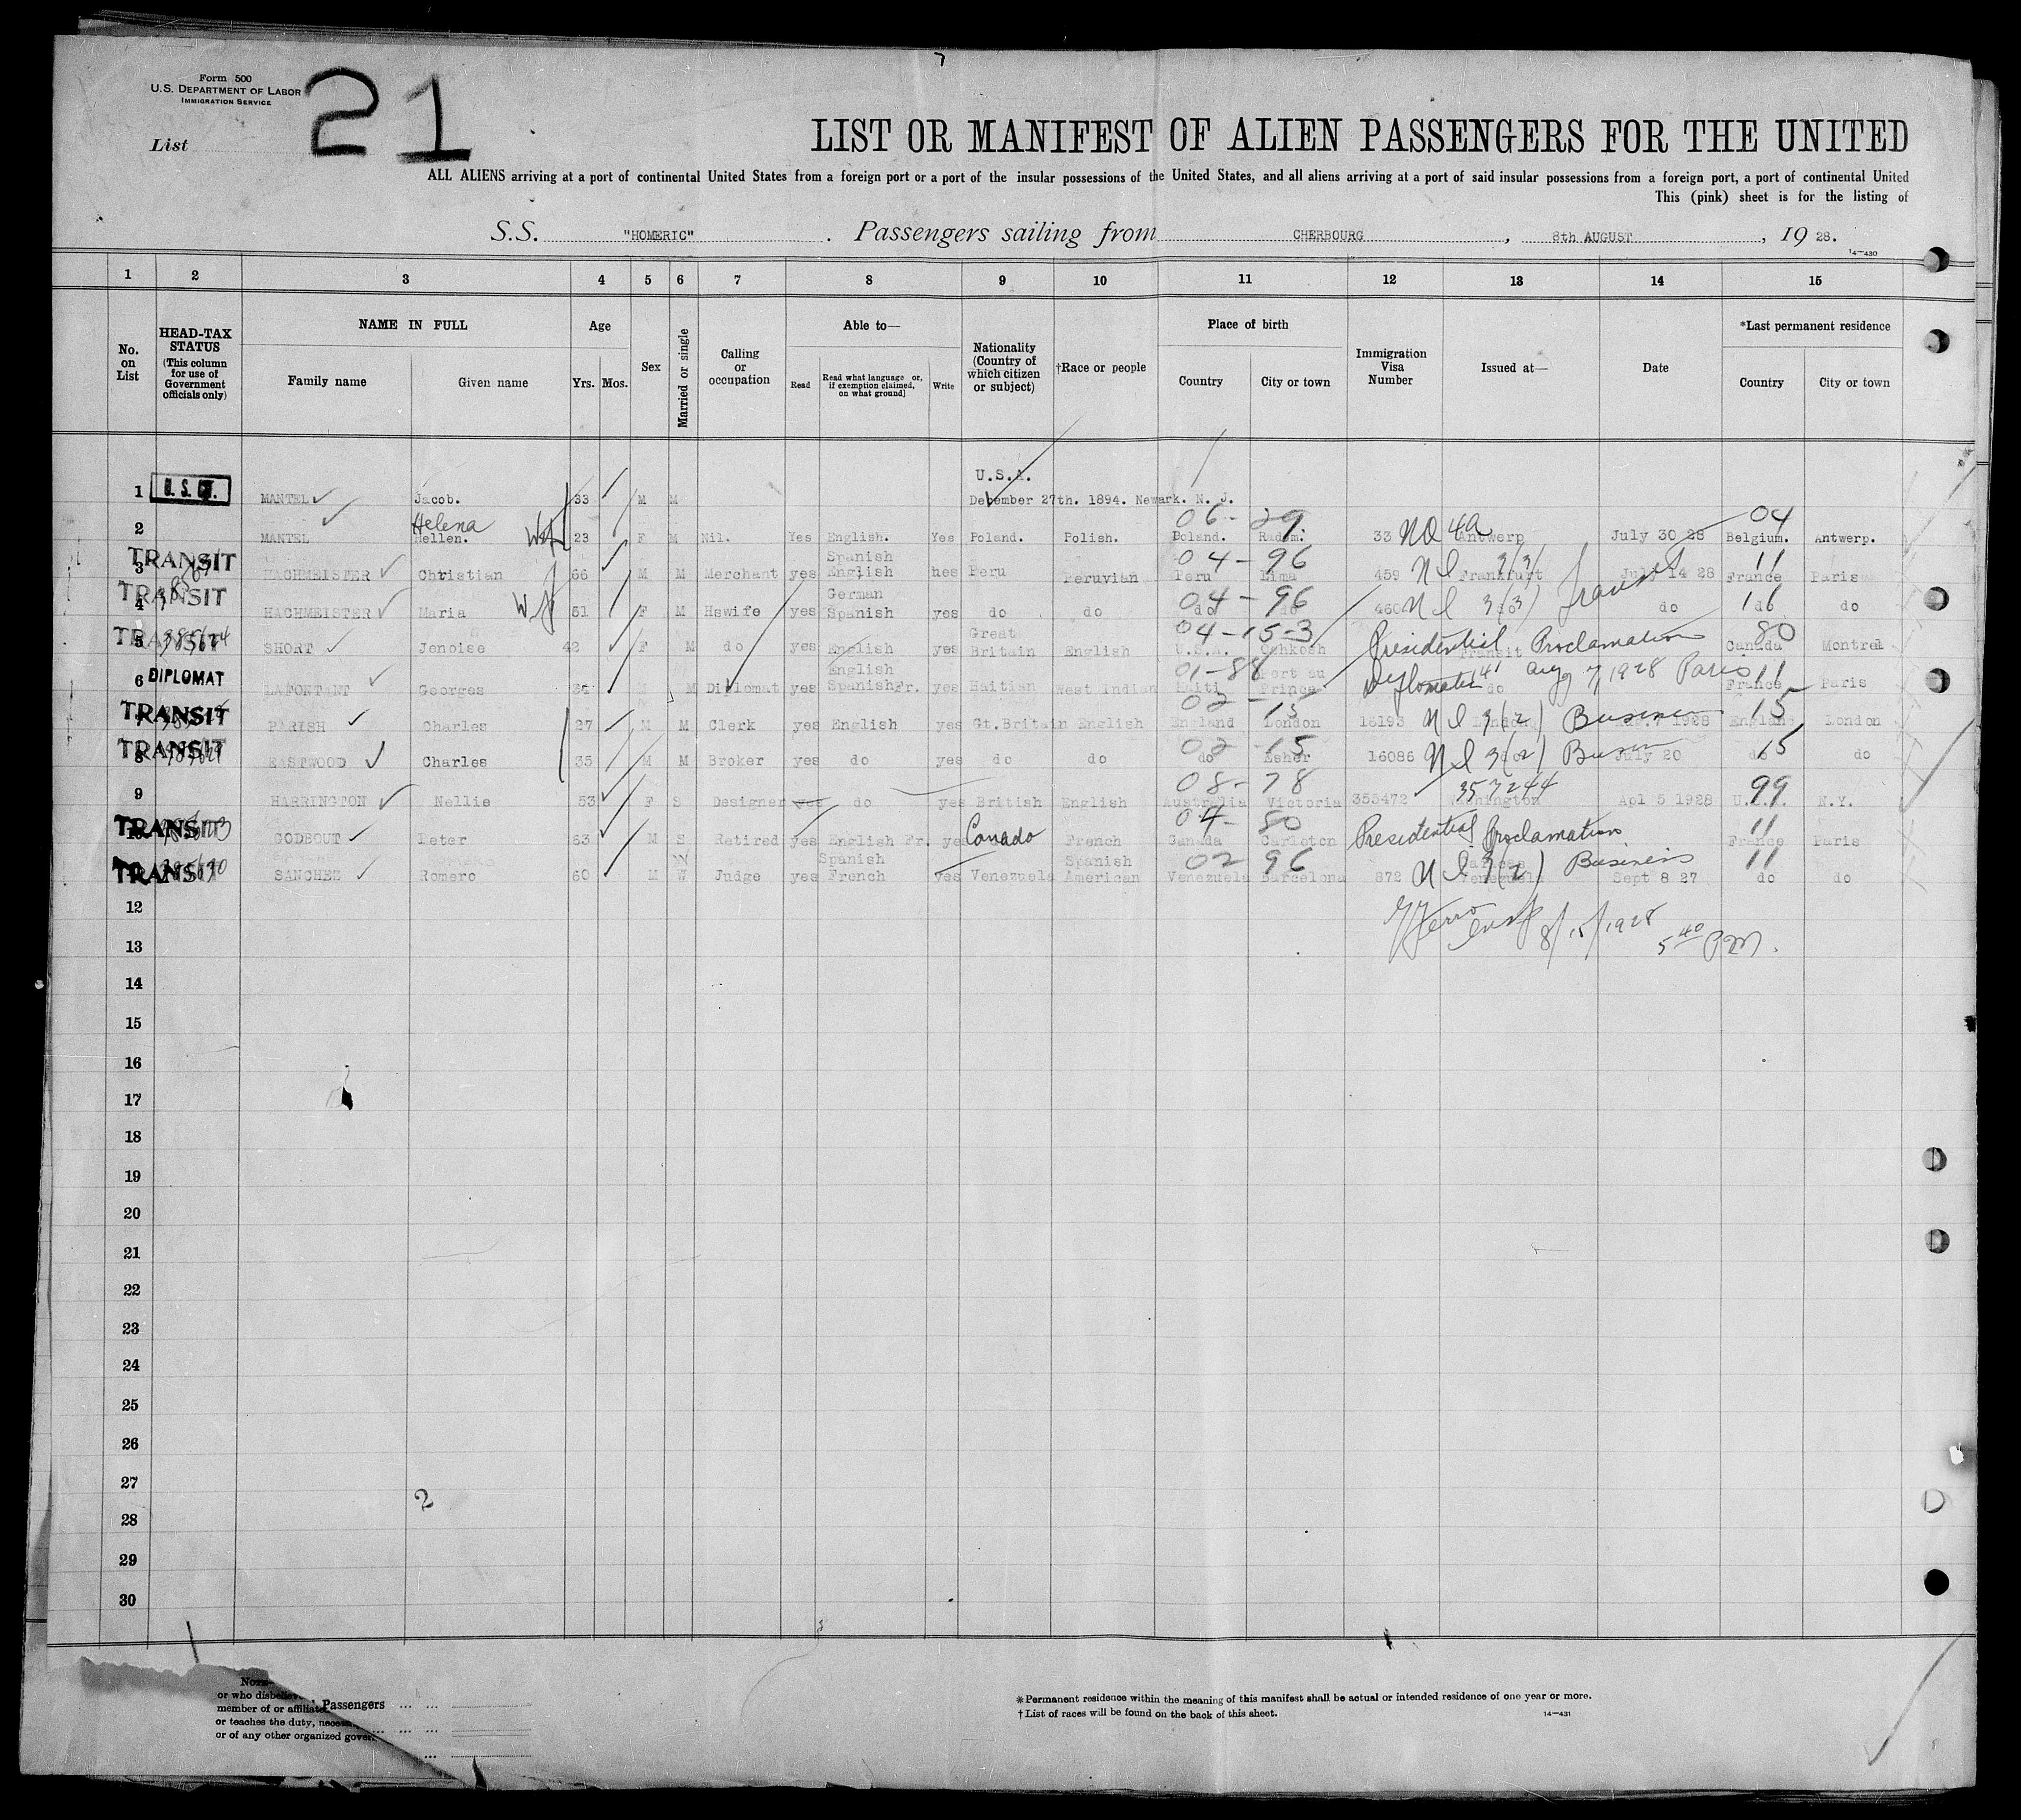 Form 500
U.S. DEPARTMENT OF LABOR
IMMIGRATION SERVICE
21
List
LIST OR MANIFEST OF ALIEN PASSENGERS FOR THE UNITED
ALL ALIENS arriving at a port of continental United States from a foreign port or a port of the insular possessions of the United States, and all aliens arriving at a port of said insular possessions from a foreign port, a port of continental United
This (pink) sheet is for the listing of
S.S. "HOMERIC". Passengers sailing from CHERBOURG, 8th AUGUST, 19 28.
14—430
1 2 3 4 5 6 7 8 9 10 11 12 13 14 15
No. on List
HEAD-TAX STATUS (This column for use of Government officials only)
NAME IN FULL
Family name Given name
Age
Yrs. Mos.
Sex
Married or single
Calling or occupation
Able to—
Read
Read what language or, if exemption claimed, on what ground]
Write
Nationality (Country of which citizen or subject)
†Race or people
Place of birth
Country City or town
Immigration Visa Number
Issued at—
Date
*Last permanent residence
Country City or town
U.S.A.
1 MANTEL Jacob. 33 M M December 27th. 1894. Newark. N. J.
Helena 06-29 04
2 MANTEL Hellen. 23 F M Nil. Yes English. Yes Poland. Polish. Poland. Radom. 33 NQ 4a Antwerp July 30 28 Belgium. Antwerp.
TRANSIT Spanish 04-96 11
3 HACHMEISTER Christian 66 M M Merchant yes English hes Peru Peruvian Peru Lima 459 3(3) Frankfurt July 14 28 France Paris
Transit
TRANSIT German 04-96 16
4 HACHMEISTER Maria 51 F M Hswife yes Spanish yes do do do do 460 3(3) do do do do
TRANSIT Great 04-15-3 Presidential Proclamation 80
5 SHORT Jenoise 42 F M do yes English yes Britain English U.S.A. Oshkosh Transit Canada Montreal
DIPLOMAT English 01-88 Port au Aug 7, 1928 Paris 11
6 LAFONTANT Georges M M Diplomat yes Spanish Fr. yes Haitian West Indian Haiti Prince do France Paris
TRANSIT 02-15 15
PARISH Charles 27 M M Clerk yes English yes Gt.Britain English England London 16193 3(2) London Business 1928 England London
TRANSIT 02-15 15
8 EASTWOOD Charles 35 M M Broker yes do yes do do do Esher 16086 3(2) do July 20 do do
08-78 357244 99
9 HARRINGTON Nellie 53 F S Designer yes do yes British English Australia Victoria 355472 Washington Apl 5 1928 U.S.A. N.Y.
TRANSIT 04-80 Presidential Proclamation 11
GODBOUT Peter 63 M S Retired yes English Fr. yes Canada French Canada Carleton France Paris
TRANSIT Spanish Spanish 02 96 Caracas Business 11
SANCHEZ Romero 60 M W Judge yes French yes Venezuela American Venezuela Barcelona 872 3(2) Venezuela Sept 8 27 do do
12
8/15/1928
13
5 40 PM.
14
15
16
17
18
19
20
21
22
23
24
25
26
27
2
28
29
30
NOTE
or who disbelieve
Passengers
member of or affiliate
or teaches the duty, necess
or of any other organized gover
*Permanent residence within the meaning of this manifest shall be actual or intended residence of one year or more.
†List of races will be found on the back of this sheet.
14—431